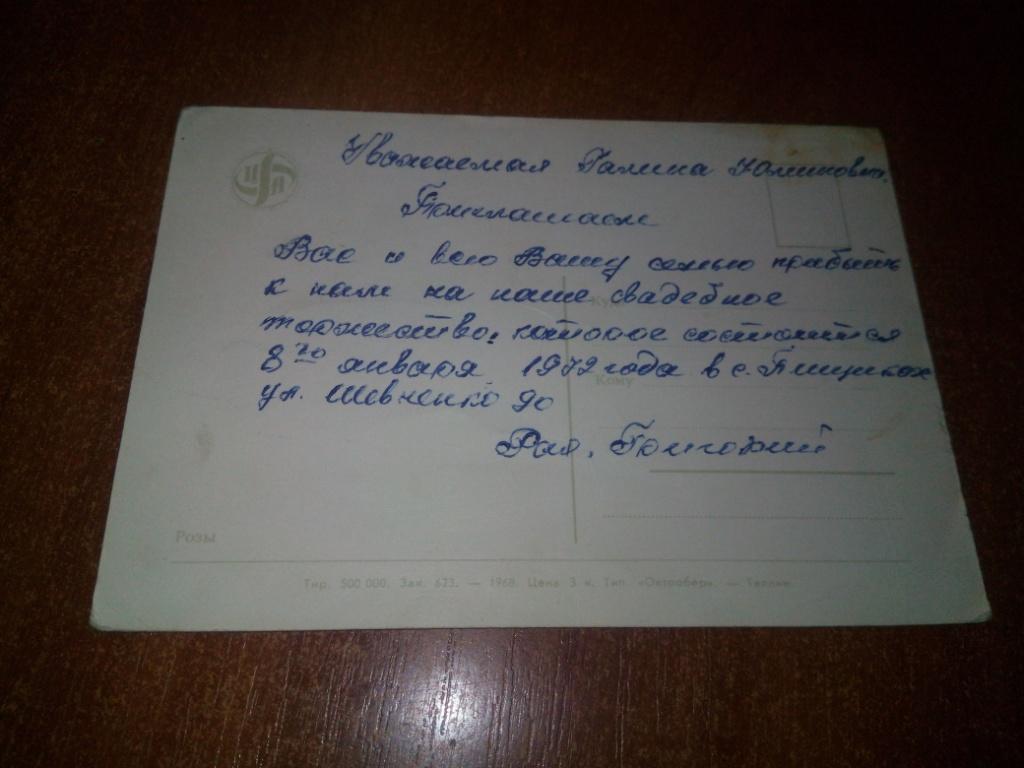 Уважаемая Галина
Приглашаем
Вас и всю Вашу семью прибыть
к нам на наше свадебное
торжество, которое состоится
8го января 1972 года в с. Пищиках
ул. Шевченко 90
Рая, Григорий
Куда
Кому
Розы
Тир. 500 000. Зак. 623. — 1968. Цена 3 к. Тип. «Октообер». — Таллин